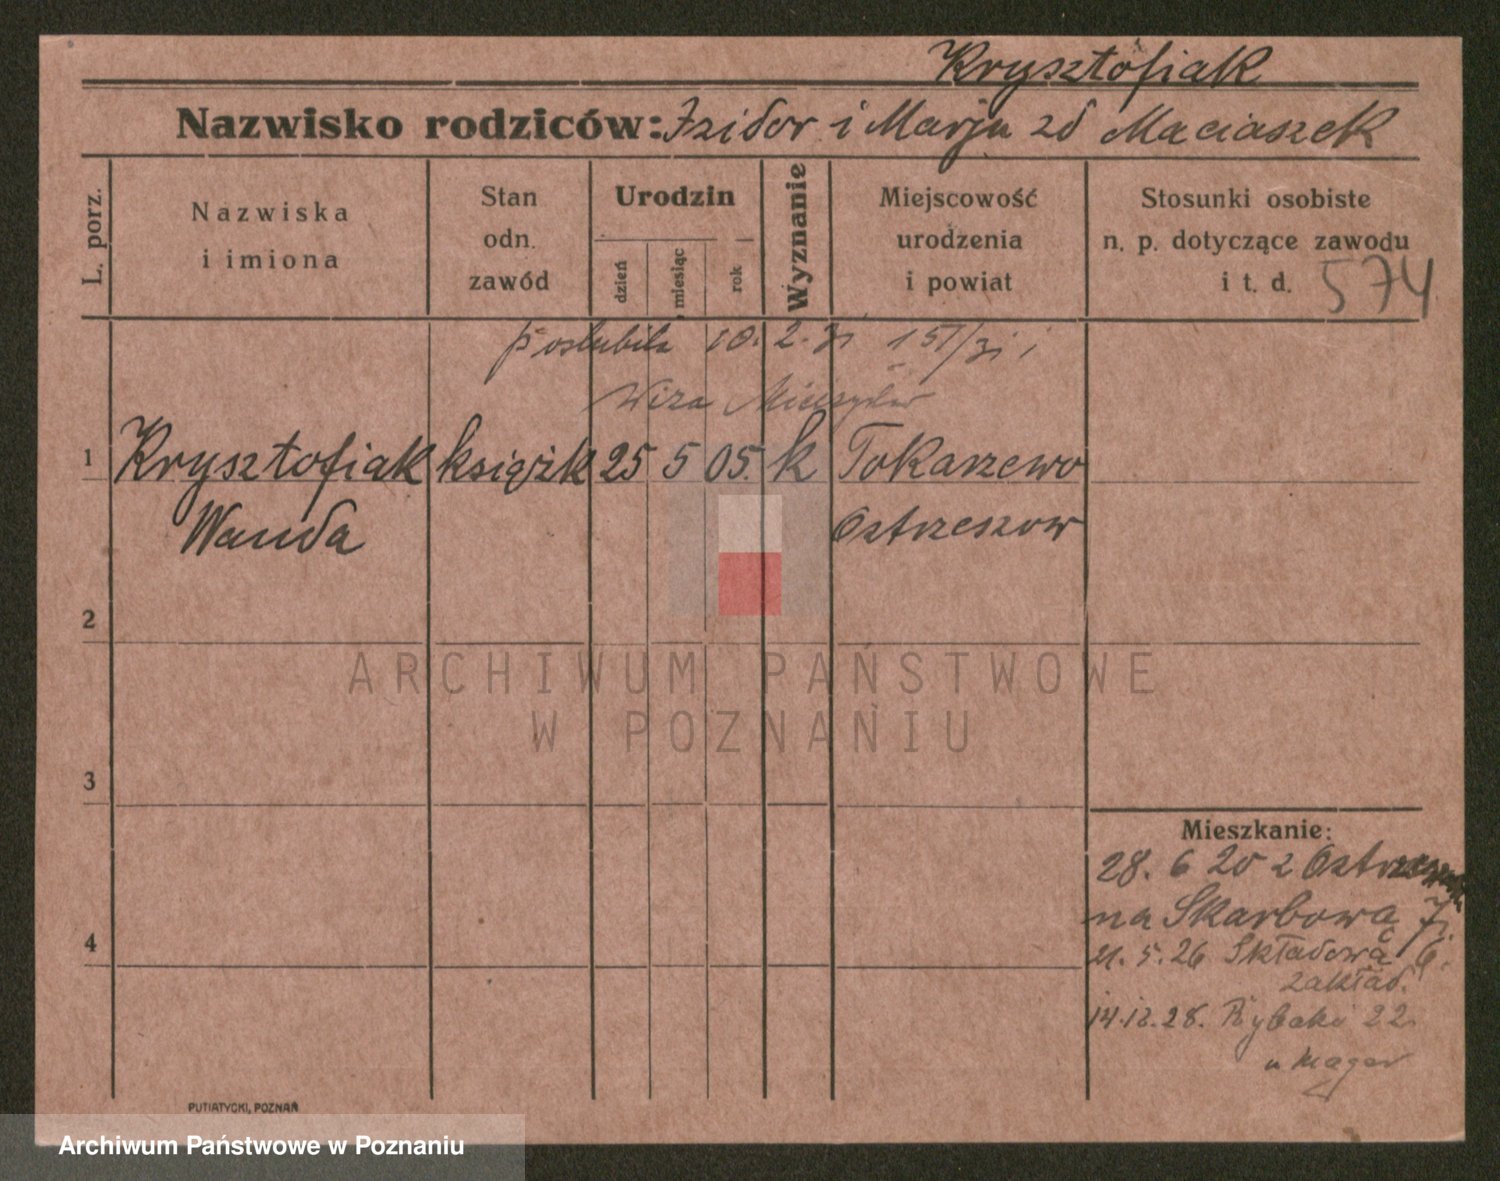 Krysztofiak
Nazwisko rodziców: Izidor i Marja zd Maciaszek
L. porz.
Nazwiska
i imiona
Stan
odn.
zawód
Urodzin
dzień
miesiąc
rok
Wyznanie
Miejscowość
urodzenia
i powiat
Stosunki osobiste
n. p. dotyczące zawodu
i t. d.
574
poslubiła 10. 2. 31 151/31 i
Wiza
1 Krysztofiak książk 25 5 05. k Tokarzewo
Wanda Ostrzeszow
2
3
4
Mieszkanie:
28. 6 20 z
na Skarbowa 7
21. 5. 26 Składowa 6.
zakład.
14.12.28. Rybaki 22
u Mager
PUTIATYCKI, POZNAŃ
ARCHIWUM PAŃSTWOWE
W POZNANIU
Archiwum Państwowe w Poznaniu